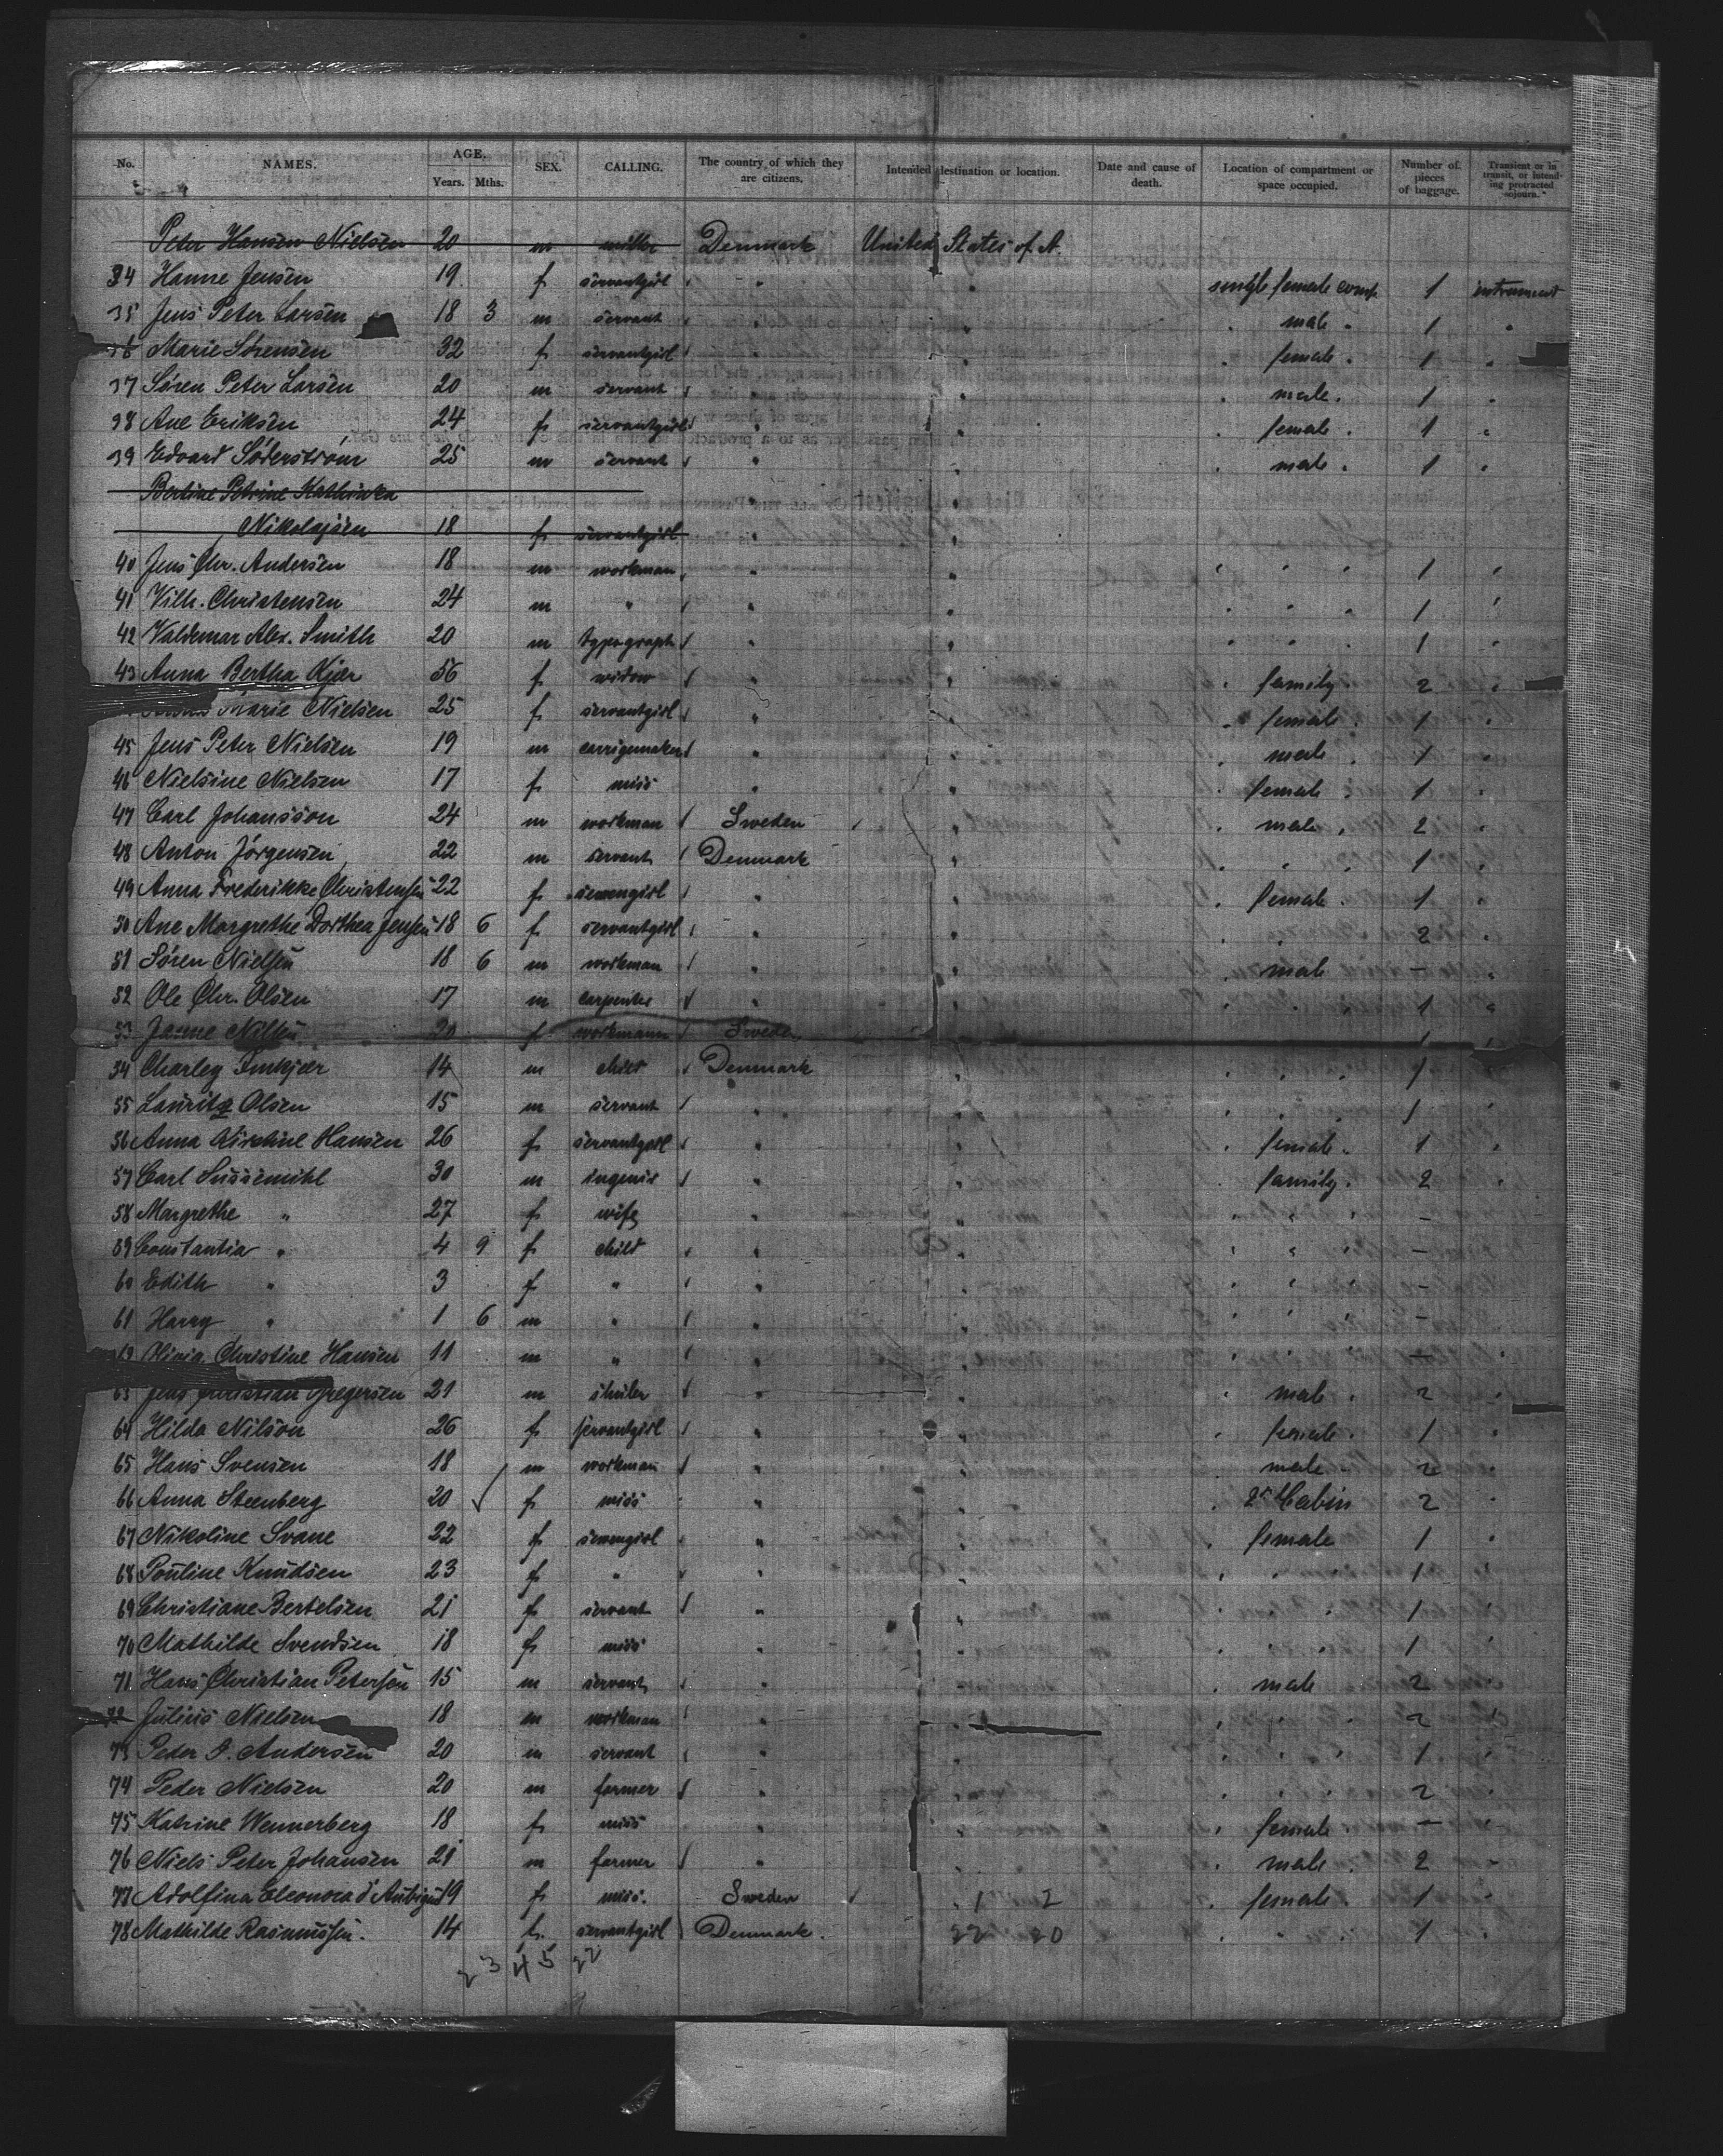 No. NAMES. AGE. Years. Mths. SEX. CALLING. The country of which they are citizens. Intended destination or location. Date and cause of death. Location of compartment or space occupied. Number of pieces of baggage. Transient or in transit, or intending protracted sojourn.*
Peter Hansen Nielsen 20 m miller Denmark United States of A.
34 Hanne Jensen 19 f servantgirl " " single female comp. 1
35 Jens Peter Larsen 18 3 m servant " " " male " 1 "
36 Marie Sørensen 32 f servantgirl " " " female " 1 "
37 Søren Peter Larsen 20 m servant " " " male " 1 "
38 Ane Eriksen 24 f servantgirl " " " female " 1 "
39 Edvard Söderström 25 m servant " " " male " 1 "
Bertine Petrine Kathinka
Nikolajsen 18 f servantgirl " "
40 Jens Chr. Andersen 18 m workman " " " " " 1 "
41 Vilh. Christensen 24 m " " " " " " 1 "
42 Valdemar Alex. Smith 20 m typograph " " " " " 1 "
43 Anna Bertha Kjær 56 f widow " " " family " 2 "
Marie Nielsen 25 f servantgirl " " " female " 1 "
45 Jens Peter Nielsen 19 m carrigemaker " " " male " 1 "
46 Nielsine Nielsen 17 f miss " " " female " 1 "
47 Carl Johansson 24 m workman Sweden " " male " 2 "
48 Anton Jörgensen 22 m servant Denmark " " " " 1 "
49 Anna Frederikke Christensen 22 f sewengirl " " " female " 1 "
50 Ane Margrethe Dorthea Jensen 18 6 f servantgirl " " " " " 2 "
51 Søren Nielsen 18 6 m workman " " " male " - "
52 Ole Chr. Olsen 17 m carpenter " " " " " 1 "
53 20 f workmann Sweden 1 "
54 Charley 14 m child Denmark " " " " 1
55 Lauritz Olsen 15 m servant " " " " " 1 "
56 Anna Kirstine Hansen 26 f servantgirl " " " female " 1 "
57 Carl Sussemihl 30 m ingenir " " " family " 2 "
58 Margrethe " 27 f wife " " " " " - "
59 Constantia " 4 9 f child " " " " " - "
60 Edith " 3 f " " " " " " - "
61 Harry " 1 6 m " " " " " " - "
62 Olivia Christine Hansen 11 m " " " " " " - "
63 Jens Christian Gregersen 21 m " " " male " 2 "
64 Hilda Nilson 26 f servantgirl " " " female " 1 "
65 Hans Svensen 18 m workman " " " male " 2 "
66 Anna Steenberg 20 f miss " " " 2n Cabin 2 "
67 Nikoline Svane 22 f sewengirl " " " female 1 "
68 Pouline Knudsen 23 f " " " " " " 1 "
69 Christiane Bertelsen 21 f servant " " " " " 1 "
70 Mathilde Svendsen 18 f miss " " " " " 1 "
71 Hans Christian Petersen 15 m servant " " " male 2 "
72 Julius Nielsen 18 m workman " " " " " 2 "
73 Peder P. Andersen 20 m servant " " " " " 1 "
74 Peder Nielsen 20 m farmer " " " " " 2 "
75 Katrine Wennerberg 18 f miss " " " female " - "
76 Niels Peter Johansen 21 m farmer " " " male " 2 "
77 Adolfina Eleonora d' 19 f miss. Sweden 1 2 " female " 1 "
78 Mathilde Rasmussen. 14 f. servantgirl Denmark. 22 20 " " " 1 "
23 45 22